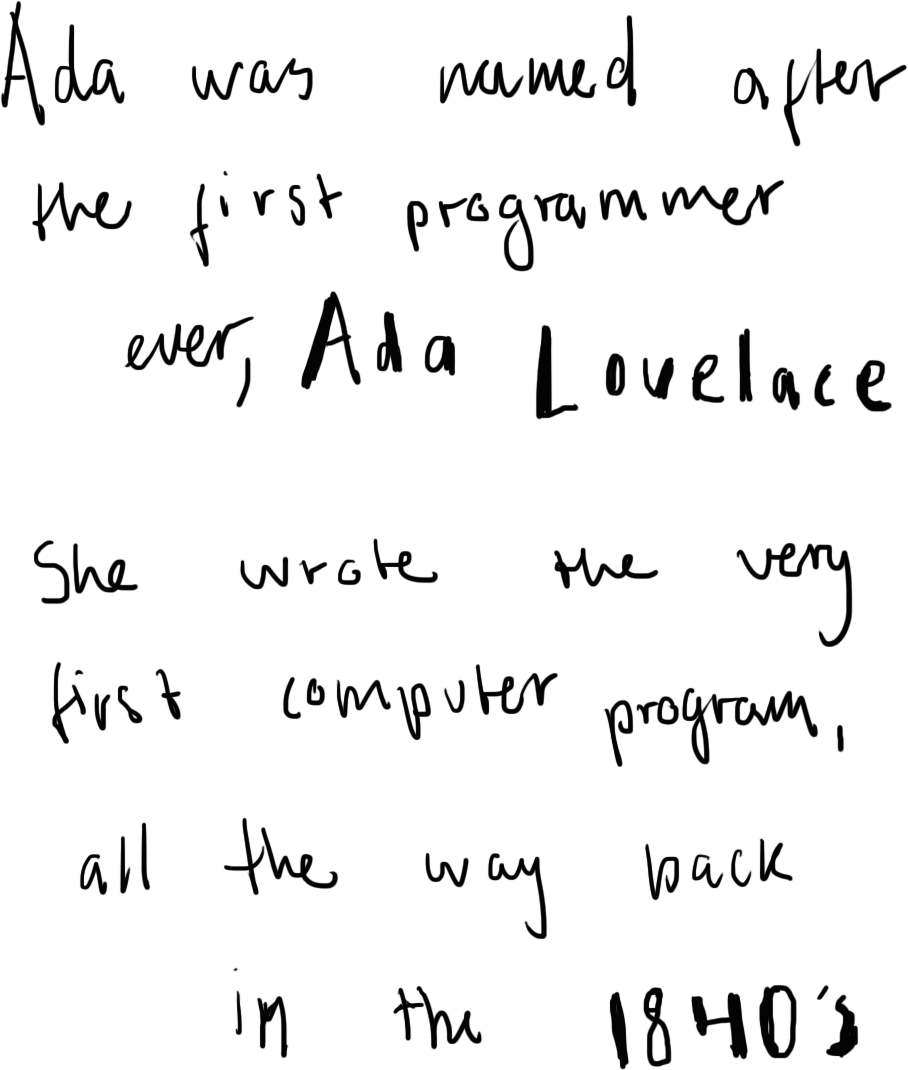 Ada was named after
the first programmer
ever, Ada Lovelace
She wrote the very
first computer program,
all the way back
in the 1840's